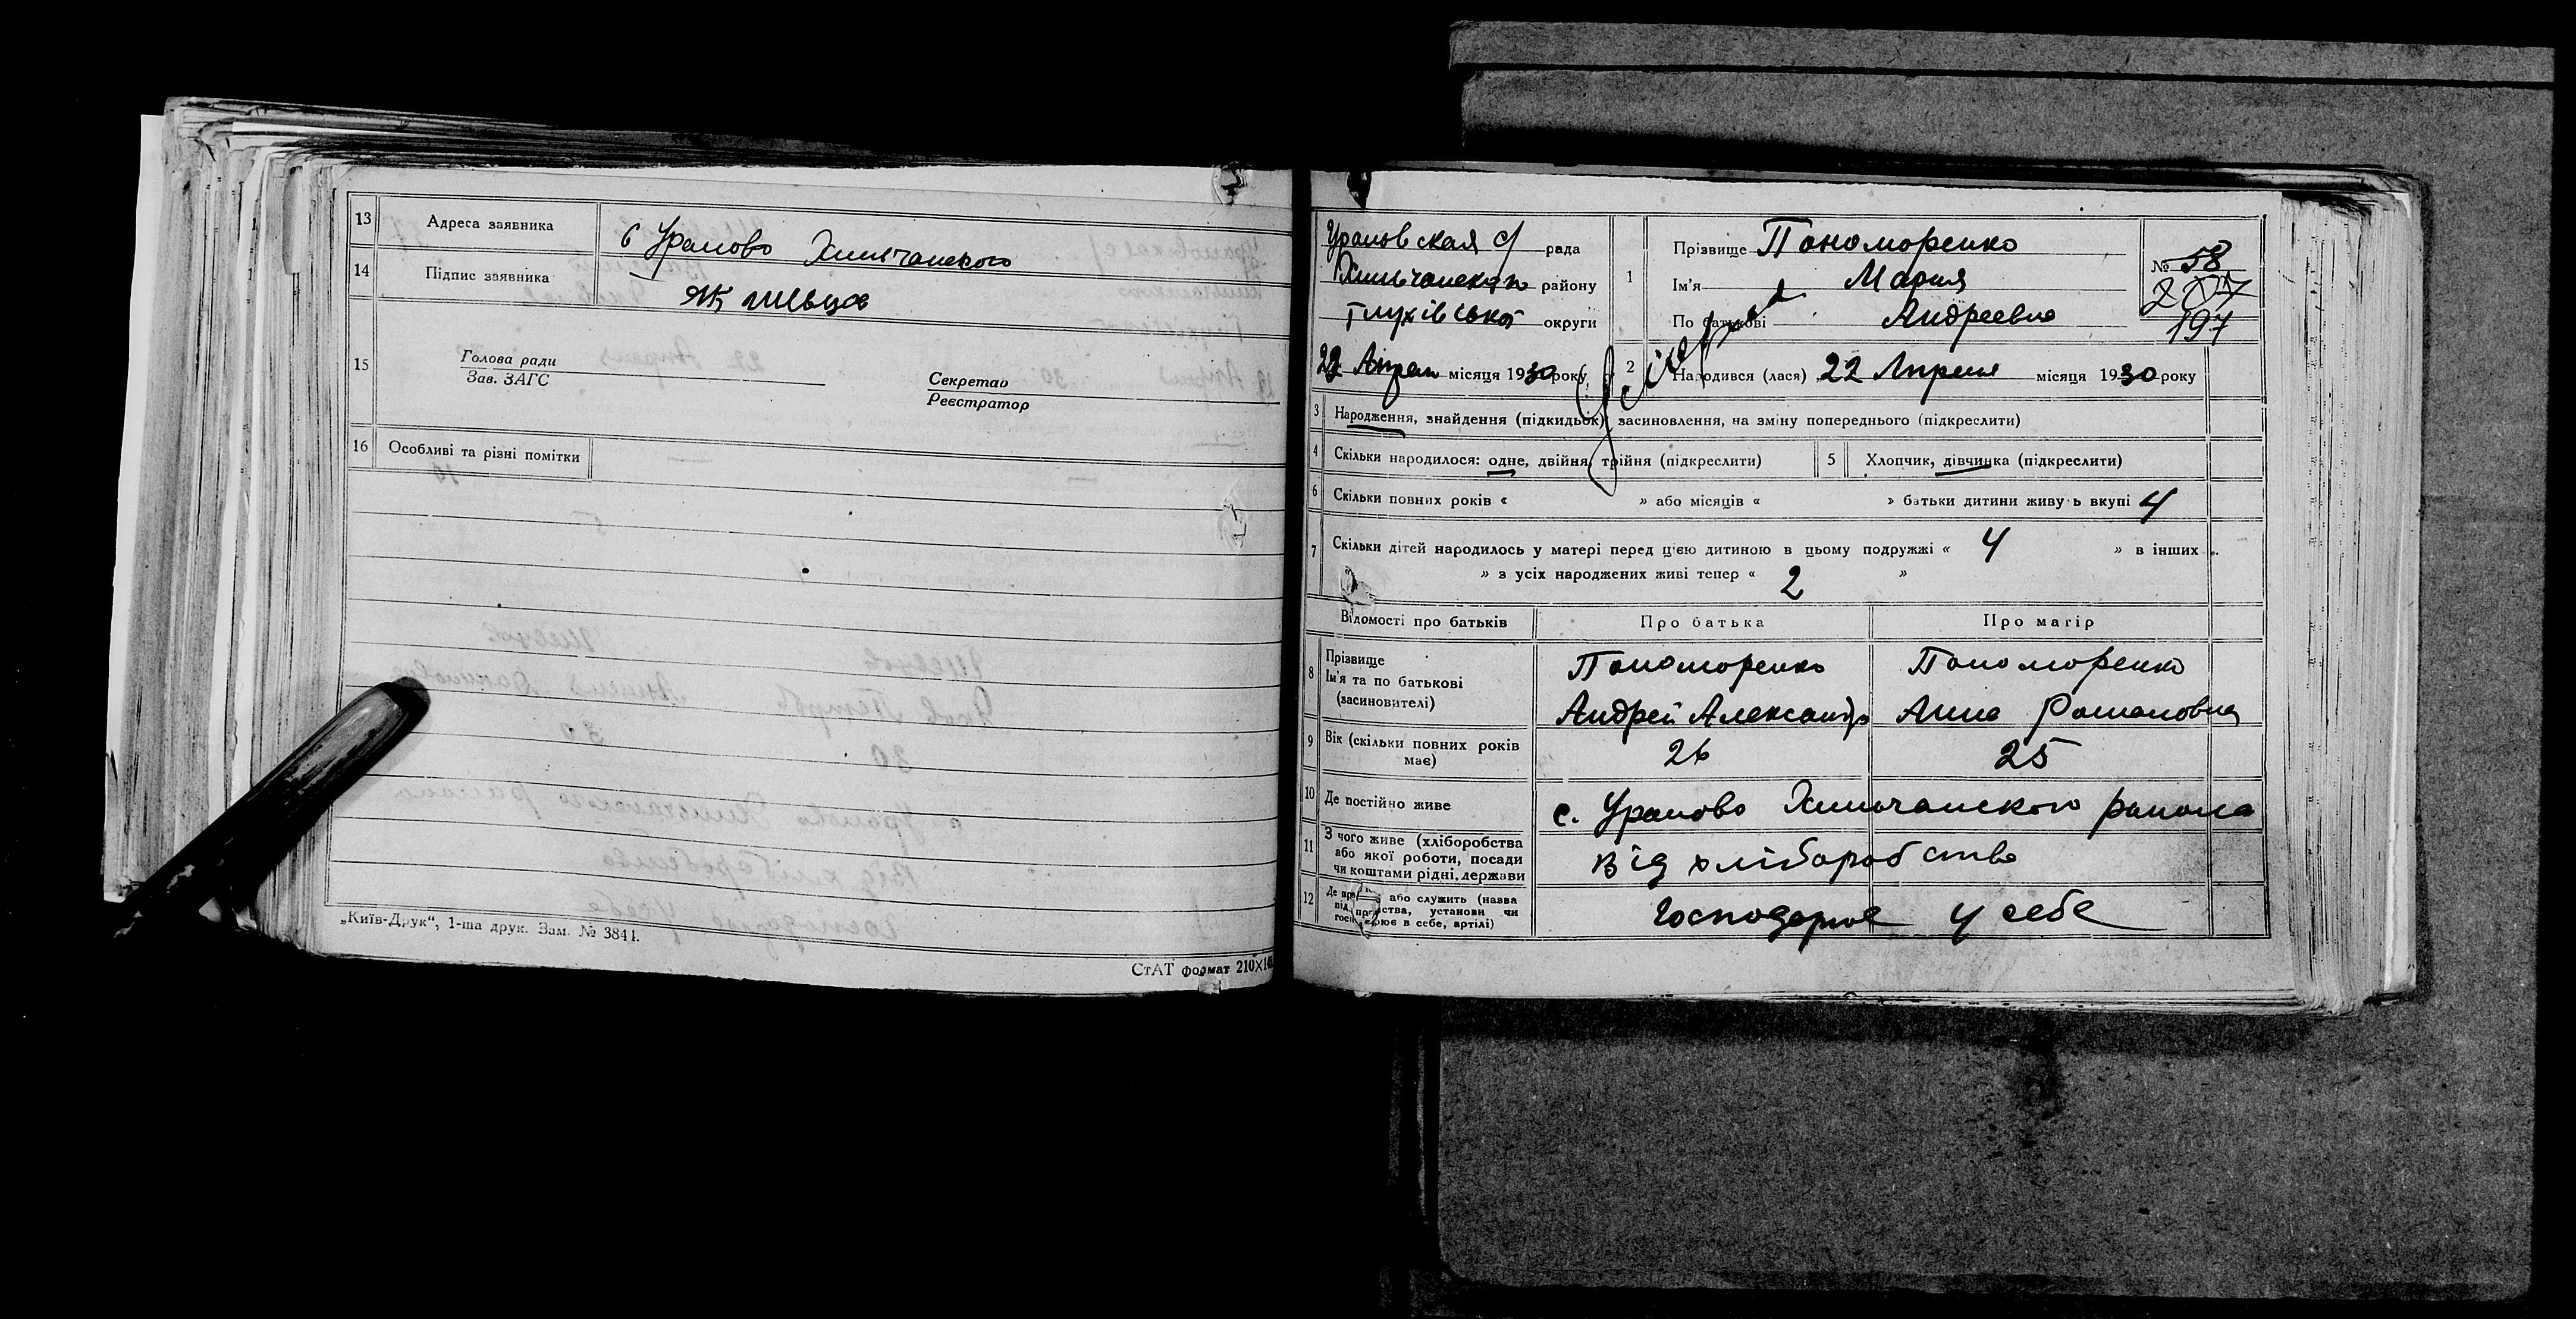 13 Адреса заявника
с Уралово Хильчанского
14 Підпис заявника
Як Шевцов
15 Голова ради
Зав. ЗАГС
Секретар
Реєстратор
16 Особливі та різні помітки
„Київ-Друк“, 1-ша друк. Зам. № 3841.
СтАТ формат 210×14
Ураловская с/ рада
Хильчанского району
Глухівської округи
22 Апреля місяця 1930 року
1 Прізвище Пономоренко
Ім'я Мария
По батькові Андреевна
№ 58
207
197
2 Народився (лася) 22 Апреля місяця 1930 року
3 Народження, знайдення (підкидьок) засиновлення, на зміну попереднього (підкреслити)
4 Скільки народилося: одне, двійня, трійня (підкреслити)
5 Хлопчик, дівчинка (підкреслити)
6 Скільки повних років « » або місяців « » батьки дитини живуь вкупі 4
7 Скільки дітей народилось у матері перед цією дитиною в цьому подружжі « 4 » в інших
» з усіх народжених живі тепер « 2 »
Відомості про батьків
Про батька
Про матір
8 Прізвище
Ім'я та по батькові
(засиновителі)
Пономоренко
Андрей Александр
Пономоренко
Анна Романовна
9 Вік (скільки повних років має)
26
25
10 Де постійно живе
с. Уралово Хильчанского района
11 З чого живе (хліборобства
або якої роботи, посади
чи коштами рідні, держави
Від хліборобства
12 Де або служить (назва
установи чи
в себе, артілі)
Господорює у себе